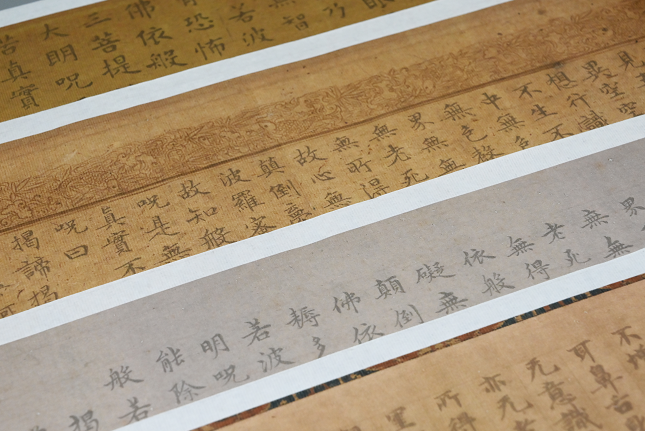 乃
無智
若波
恐怖
佛依般
三菩提
大明呪
苦真實
見空
異空空
想行識
不生不
中無
無色
界無無
無老死
無所得
故心無
顛倒
波羅蜜
故知般
呪是無
真實不
呪曰
揭諦揭
界
無無
老死
無得
依般
礙無
顛倒
佛依
耨多
若波
明呪
能除
般若
揭
不
耳鼻舌
无意識
亦无
所得
罣